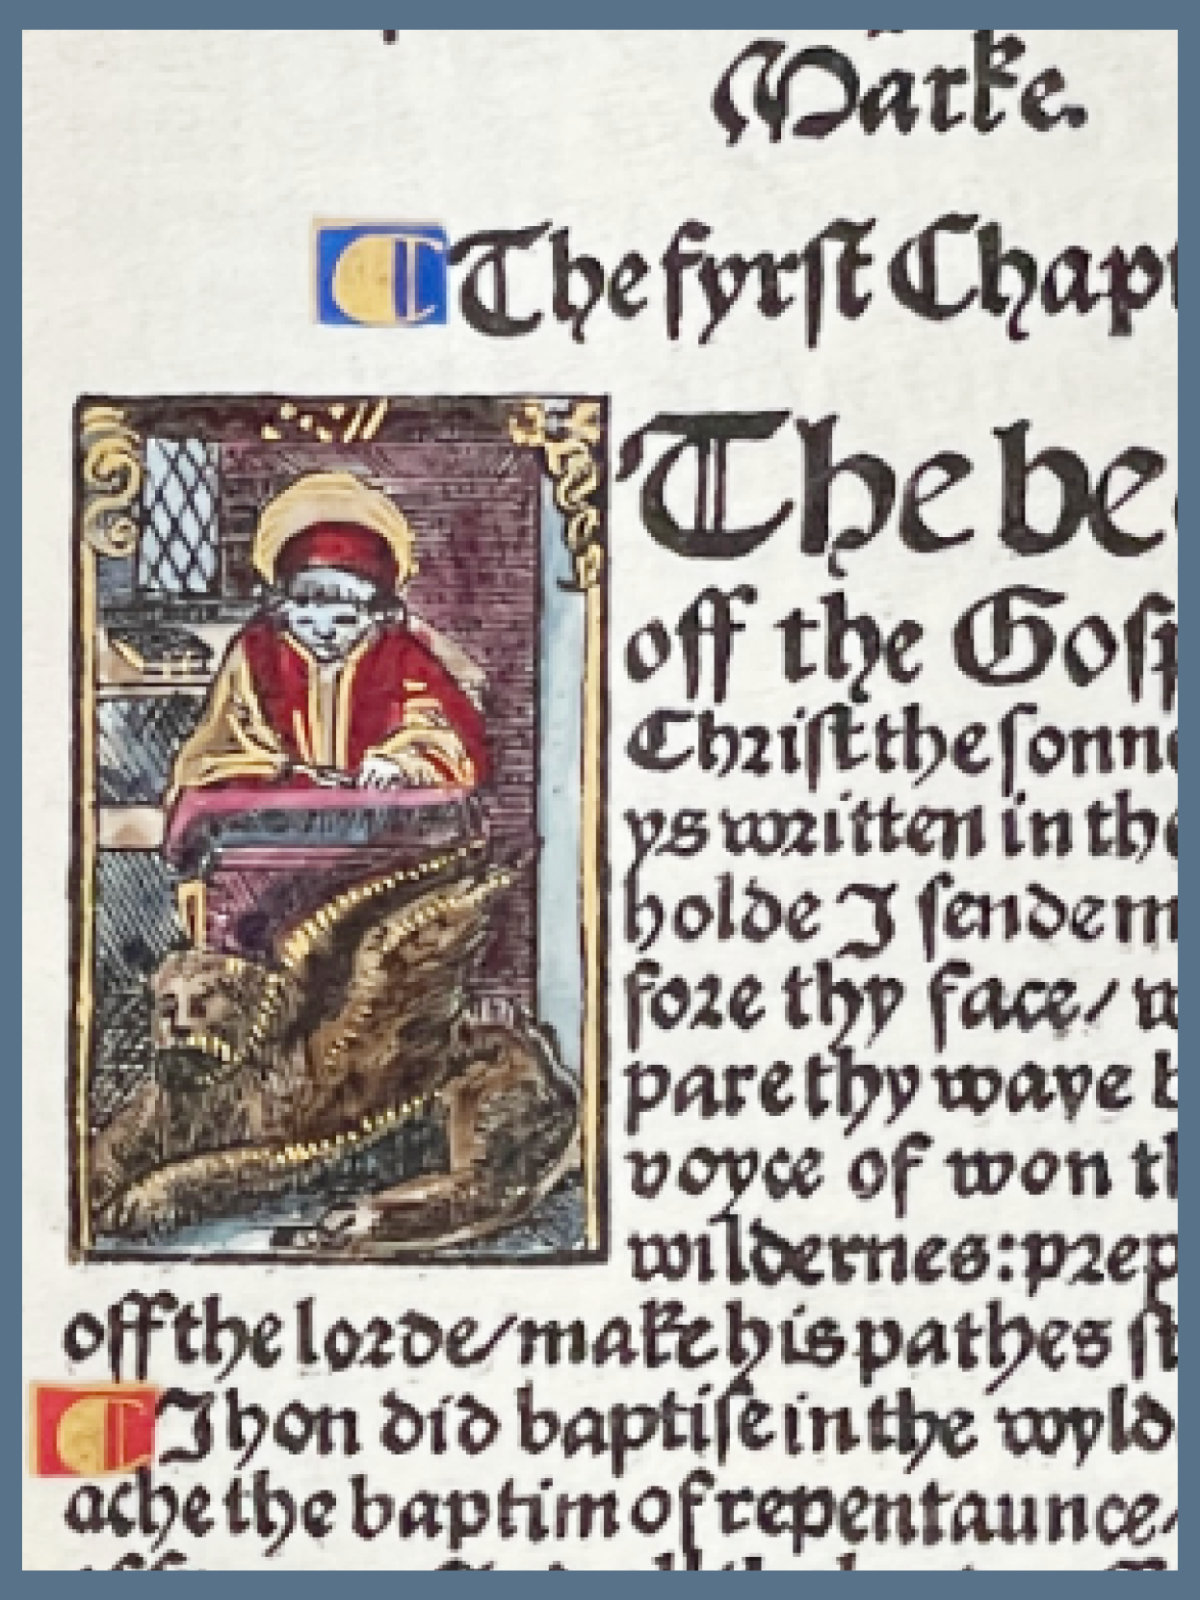 Marke.
The fyrst Chap
The be
off the Gosp
Christ the sonne
ys written in the
holde I sende m
fore thy face/ w
pare thy waye b
voyce of won th
wildernes: prep
off the lorde/ make his pathes st
Jhon did baptise in the wyld
ache the baptim of repentaunce/